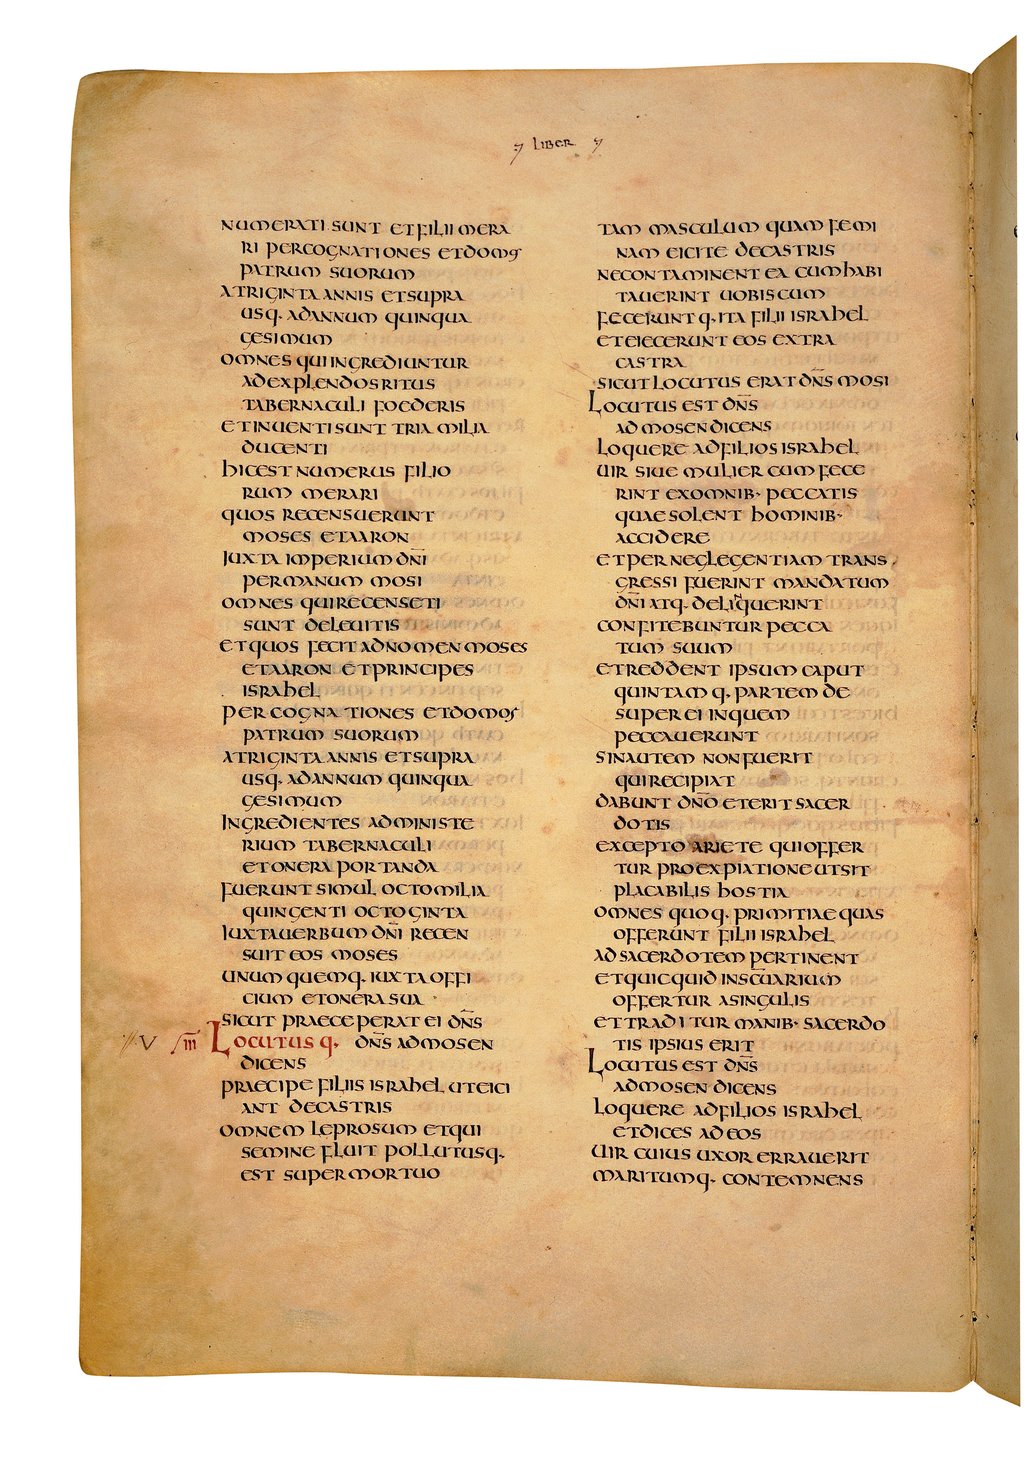 LIBER
NUMERATI SUNT ET FILII MERA
RI PER COGNATIONES ET DOMOS
PATRUM SUORUM
A TRIGINTA ANNIS ET SUPRA
USQ· AD ANNUM QUINQUA
GESIMUM
OMNES QUI INGREDIUNTUR
AD EXPLENDOS RITUS
TABERNACULI FOEDERIS
ET INUENTI SUNT TRIA MILIA
DUCENTI
HIC EST NUMERUS FILIO
RUM MERARI
QUOS RECENSUERUNT
MOSES ET AARON
IUXTA IMPERIUM DN̄I
PER MANUM MOSI
OMNES QUI RECENSETI
SUNT DE LEUITIS
ET QUOS FECIT AD NOMEN MOSES
ET AARON ET PRINCIPES
ISRAHEL
PER COGNATIONES ET DOMOS
PATRUM SUORUM
A TRIGINTA ANNIS ET SUPRA
USQ· AD ANNUM QUINQUA
GESIMUM
INGREDIENTES AD MINISTE
RIUM TABERNACULI
ET ONERA PORTANDA
FUERUNT SIMUL OCTO MILIA
QUINGENTI OCTOGINTA
IUXTA UERBUM DN̄I RECEN
SUIT EOS MOSES
UNUMQUEMQ· IUXTA OFFI
CIUM ET ONERA SUA
SICUT PRAECEPERAT EI DN̄S
V LOCUTUS Q· DN̄S AD MOSEN
DICENS
PRAECIPE FILIIS ISRAHEL UT EICI
ANT DE CASTRIS
OMNEM LEPROSUM ET QUI
SEMINE FLUIT POLLUTUSQ·
EST SUPER MORTUO
TAM MASCULUM QUAM FEMI
NAM EICITE DE CASTRIS
NE CONTAMINENT EA CUM HABI
TAUERINT UOBISCUM
FECERUNT Q· ITA FILII ISRAHEL
ET EIECERUNT EOS EXTRA
CASTRA
SICUT LOCUTUS ERAT DN̄S MOSI
LOCUTUS EST DN̄S
AD MOSEN DICENS
LOQUERE AD FILIOS ISRAHEL
UIR SIUE MULIER CUM FECE
RINT EX OMNIB· PECCATIS
QUAE SOLENT HOMINIB·
ACCIDERE
ET PER NEGLEGENTIAM TRANS
GRESSI FUERINT MANDATUM
DN̄I ATQ· DELIQUERINT
CONFITEBUNTUR PECCA
TUM SUUM
ET REDDENT IPSUM CAPUT
QUINTAMQ· PARTEM DE
SUPER EI IN QUEM
PECCAUERUNT
SIN AUTEM NON FUERIT
QUI RECIPIAT
DABUNT DN̄O ET ERIT SACER
DOTIS
EXCEPTO ARIETE QUI OFFER
TUR PRO EXPIATIONE UT SIT
PLACABILIS HOSTIA
OMNES QUOQ· PRIMITIAE QUAS
OFFERUNT FILII ISRAHEL
AD SACERDOTEM PERTINENT
ET QUICQUID IN SC̄UARIUM
OFFERTUR A SINGULIS
ET TRADITUR MANIB· SACERDO
TIS IPSIUS ERIT
LOCUTUS EST DN̄S
AD MOSEN DICENS
LOQUERE AD FILIOS ISRAHEL
ET DICES AD EOS
UIR CUIUS UXOR ERRAUERIT
MARITUMQ· CONTEMNENS